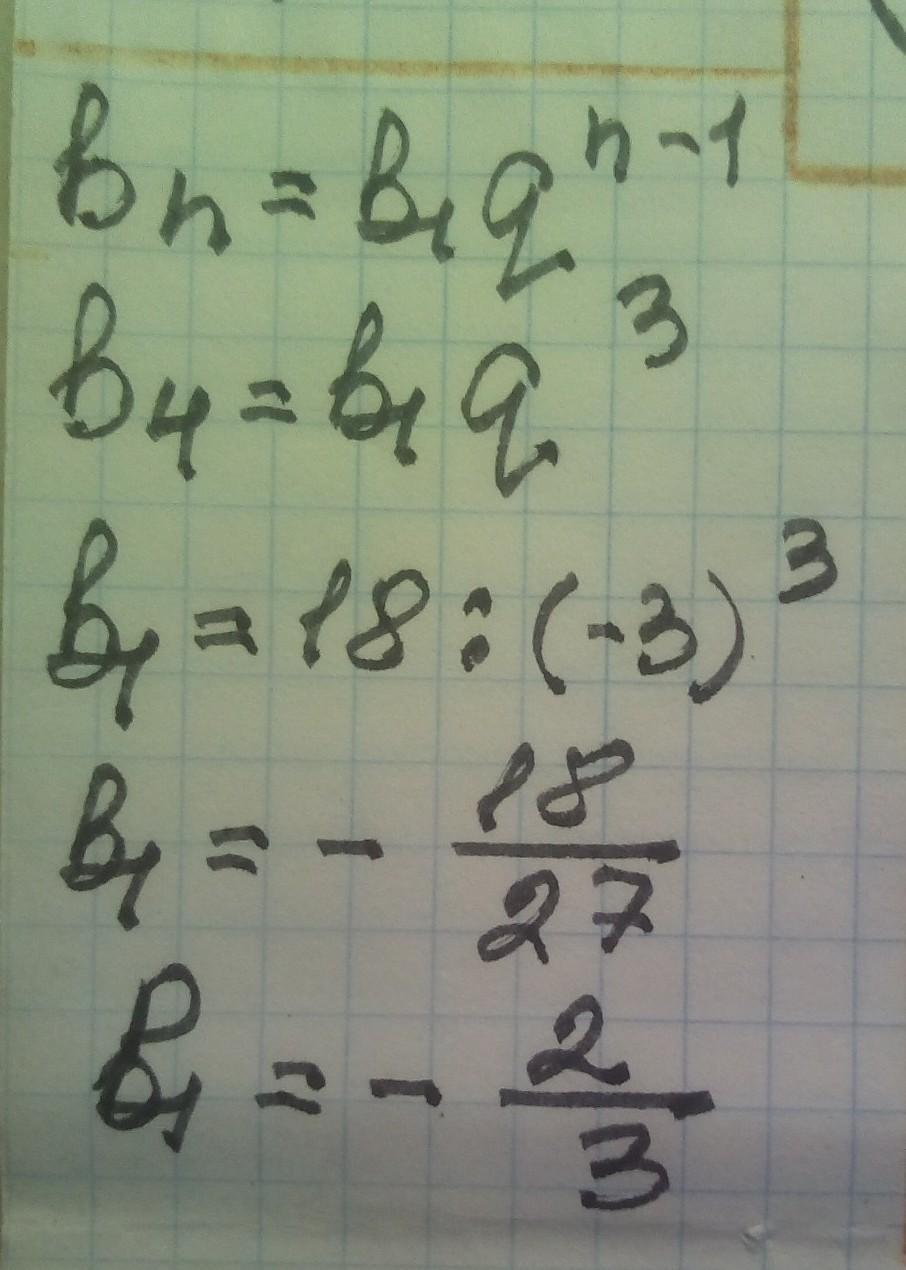 bₙ = b₁qⁿ⁻¹
b₄ = b₁q³
b₁ = 18 : (-3)³
b₁ = - 18/27
b₁ = - 2/3